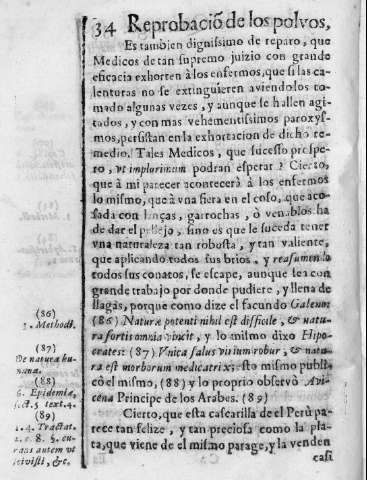 34 Reprobaciõ de los polvos,
Es tambien dignissimo de reparo, que
Medicos de tan supremo juizio con grande
eficacia exhorten à los enfermos, que si las ca-
lenturas no se extinguieren aviendolos to-
mado algunas vezes, y aunque se hallen agi-
tados, y con mas vehementissimos paroxys-
mos, persistan en la exhortacion de dicho re-
medio. Tales Medicos, que sucesso prospe-
ro, vt implorinum podran esperar? Cierto,
que à mi parecer acontecerà à los enfermos
lo mismo, que à vna fiera en el coso, que aco-
sada con lanças, garrochas, ò venablos ha
de dar el pellejo, sino es que le suceda tener
vna naturaleza tan robusta, y tan valiente,
que aplicando todos sus brios, y reasumendo
todos sus conatos, se escape, aunque sea con
grande trabajo por donde pudiere, y llena de
llagas, porque como dize el facundo Galeno:
(86) Naturæ potenti nihil est difficile, & natu-
ra fortis omnia vincit, y lo mismo dixo Hipo-
crates: (87) Vnica salus virium robur, & natu-
ra est morborum medicatrix; esto mismo publi-
cò el mismo, (88) y lo proprio observò Avi-
cena Principe de los Arabes. (89)
Cierto, que esta cascarilla del Perù pa-
rece tan felize, y tan preciosa como la pla-
ta, que viene del mismo parage, y la venden
casi
(86)
Method.
(87)
De natura hu-
mana.
(88)
6. Epidemiæ,
sect. 5 text. 4.
(89)
1. 4. Tractat.
2. c. 8. §. cu-
rans autem vt
scivisti, &c.